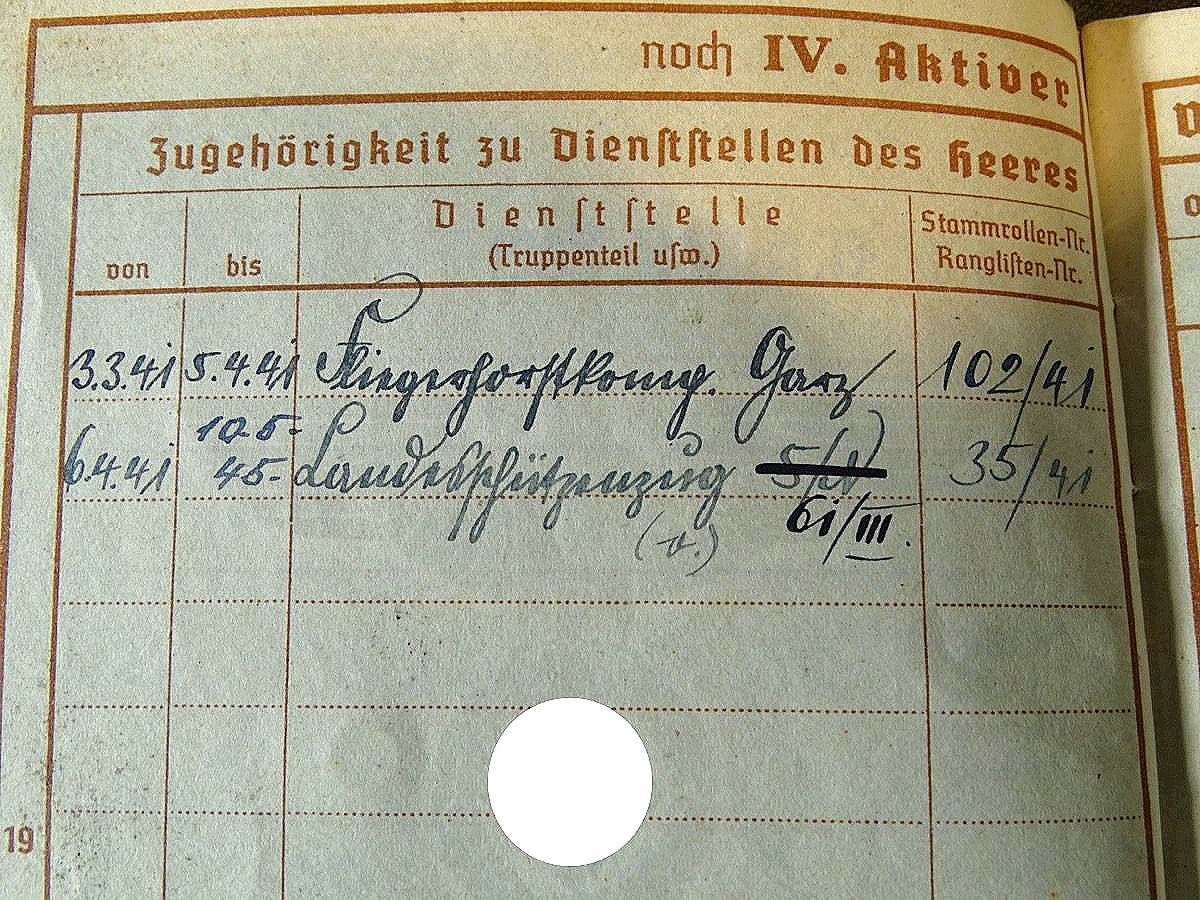 noch IV. Aktiver
Zugehörigkeit zu Dienststellen des Heeres
von bis Dienststelle (Truppenteil usw.) Stammrollen-Nr. Ranglisten-Nr.
3.3.41 5.4.41 Fliegerhorstkomp. Garz 102/41
6.4.41 10.5.45. Landesschützenzug 35/41
(o.) 61/III.
19